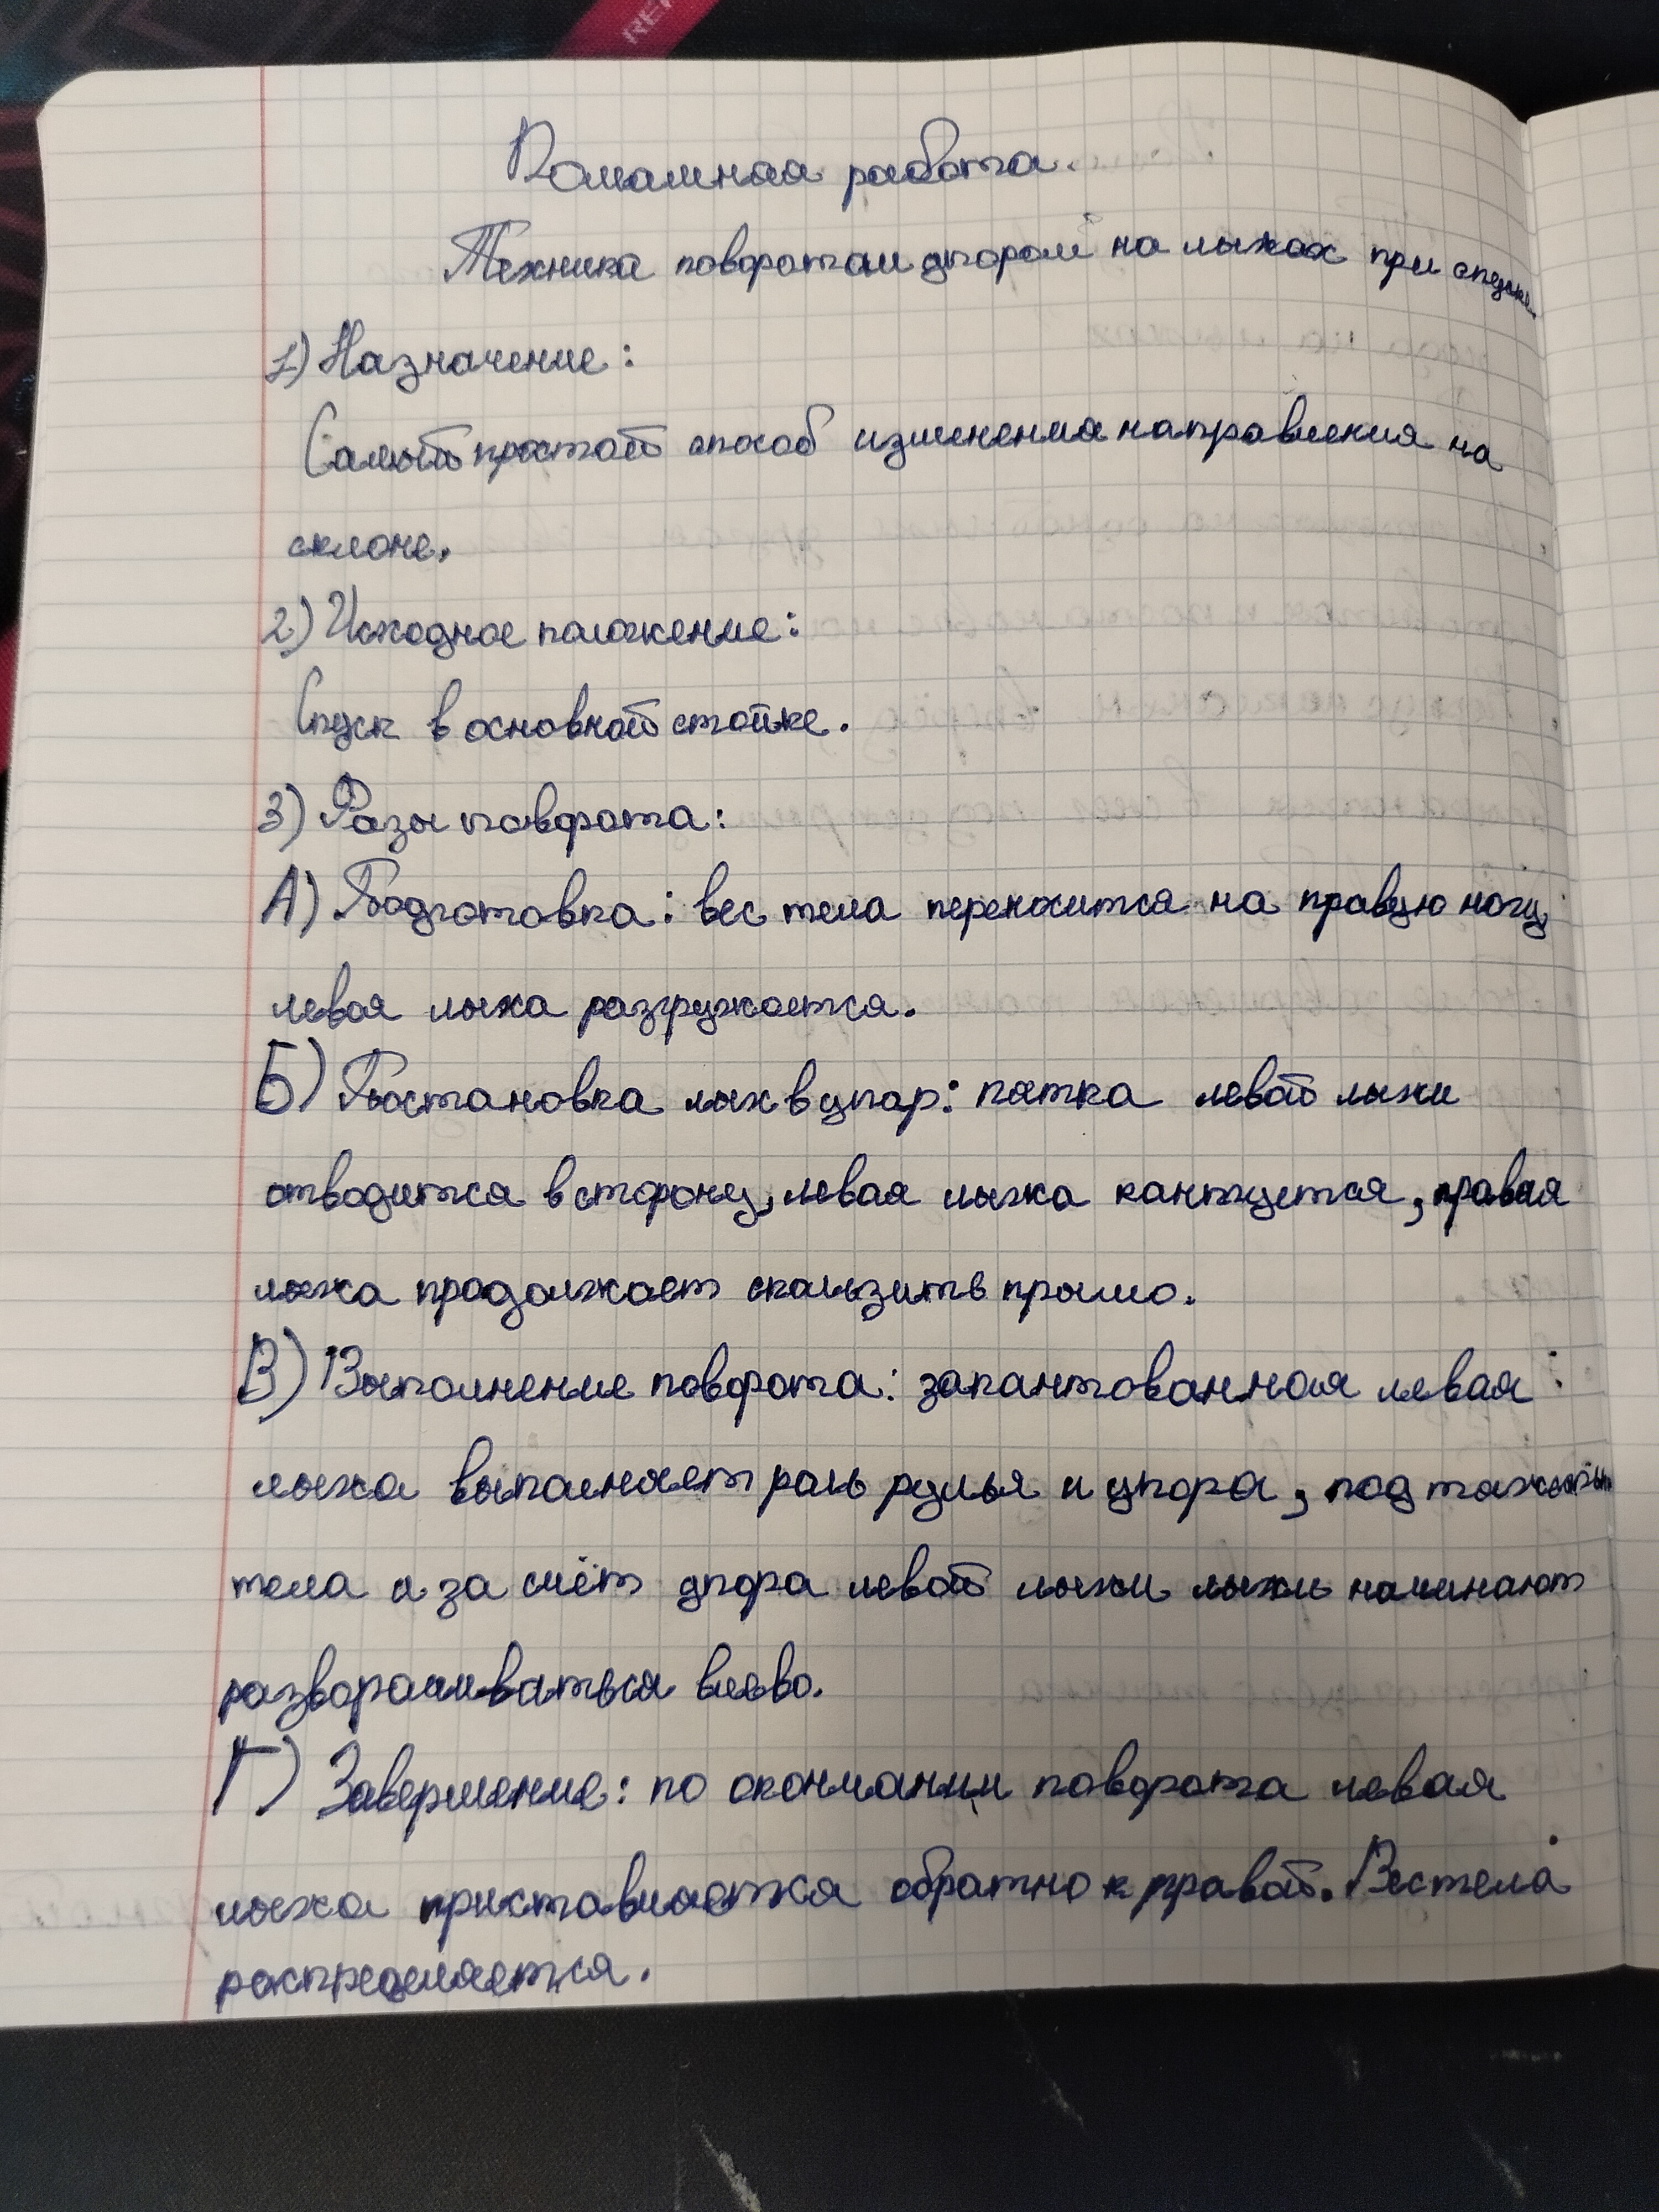 REA
Домашняя работа.
Техника поворотам упором на лыжах при спуске.
1) Назначение:
Самый простой способ изменения направления на
склоне.
2) Исходное положение:
Спуск в основной стойке.
3) Фазы поворота:
А) Подготовка: вес тела переносится на правую ногу,
левая лыжа разгружается.
Б) Постановка лыж в упор: пятка левой лыжи
отводится в сторону, левая лыжа кантуется, правая
лыжа продолжает скользить прямо.
В) Выполнение поворота: закантованная левая
лыжа выполняет роль рулья и упора, под тяжестью
тела и за счёт упора левой лыжи лыжи начинают
разворачиваться влево.
Г) Завершение: по окончании поворота левая
лыжа приставляется обратно к правой. Вес тела
распределяется.